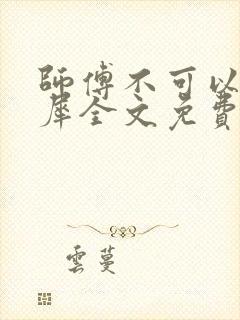 師傅不可以
犀全文免費
雲蔓